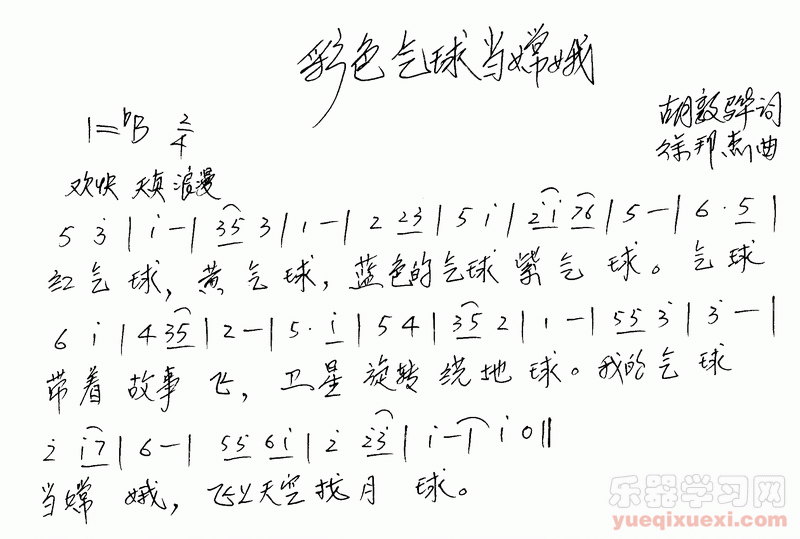 彩色气球当嫦娥
1=♭B 2/4
胡敦骅词
徐邦杰曲
欢快 天真 浪漫
5 3̇ | i - | 35 3 | 1 - | 2 23 | 5 i | 2̇i 76 | 5 - | 6 · 5 |
红气球，黄气球，蓝色的气球紫气球。气球
6 i | 4 35 | 2 - | 5 · i | 5 4 | 35 2 | 1 - | 55 3̇ | 3̇ - |
带着故事飞，卫星旋转绕地球。我的气球
2̇ i7 | 6 - | 55 6i | 2̇ 2̇3̇ | i - | i 0 ||
当嫦娥，飞上天空找月球。
乐器学习网
yueqixuexi.com